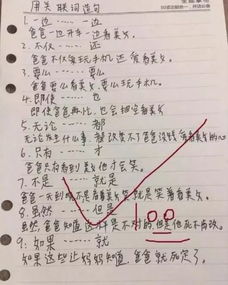 用关联词造句
1. 一边……一边
爸爸一边开车一边看美女。
2. 不仅……还
爸爸不仅爱玩手机还爱看美女。
3. 要么……要么
爸爸要么看美女,要么玩手机。
4. 即使……也
即使爸爸再忙,也会抽空看美女
5. 无论……都
无论发生什么事,都改变不了爸爸没钱
6. 只有……才
爸爸只有看到美女他才会笑。
7. 不是……就是
爸爸一天到晚不是看着美女笑就是笑着看美女
8. 虽然……但是
虽然,爸爸知道这样是不对的,但是他死不悔改。
9. 如果……就
如果这些让妈妈知道,爸爸就死定了。
100